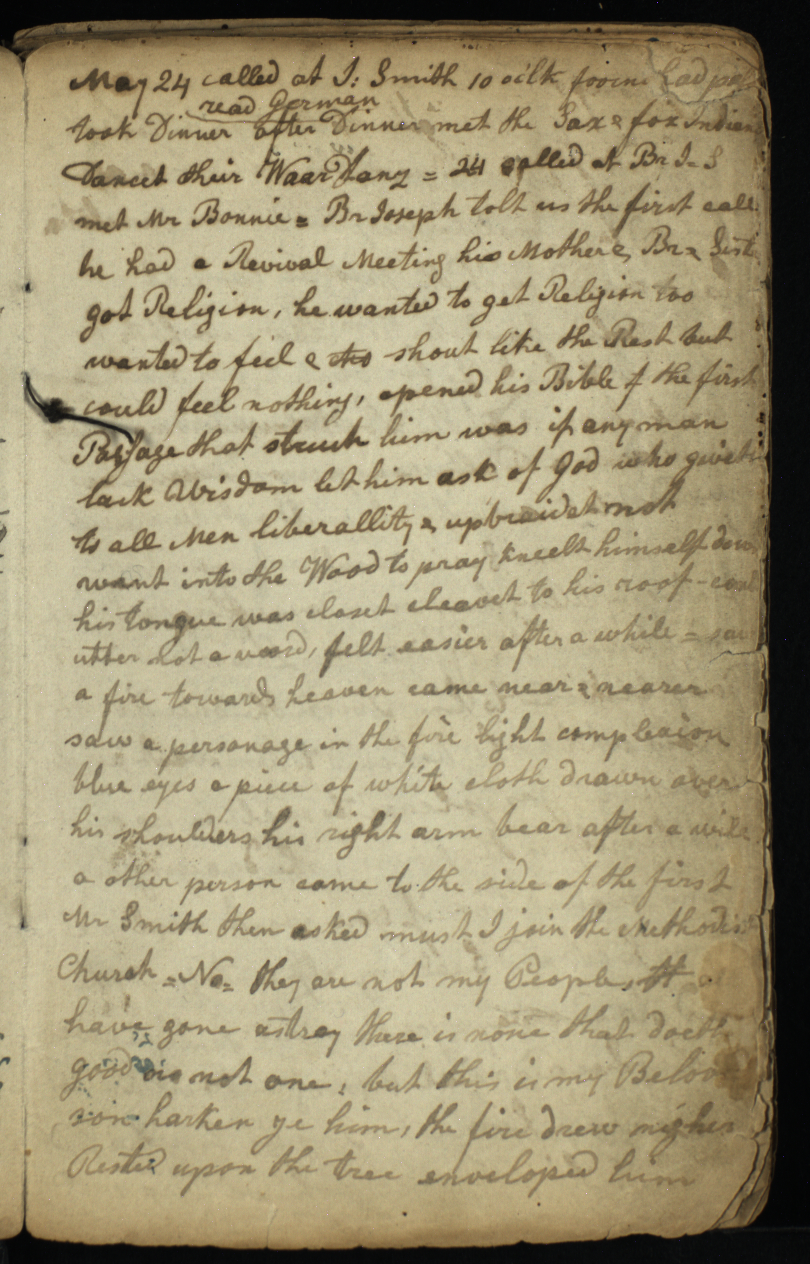 May 24 called at J: Smith 10 oclk foorne had
read German
took Dinner after Dinner met the Sax & fox Indian
Dancet their Waar Danz = 24 called at Br J. S
met Mr Bonnie = Br Joseph tolt us the first call
he had a Revival Meeting his Mother & Br & Sist
got Religion, he wanted to get Religion too
wanted to feel & sho shout like the Rest but
could feel nothing, opened his Bible f the first
Passage that struck him was if any man
lack Wisdom let him ask of God who giveth
to all Men liberallity & upbraidet not
went into the Wood to pray kneelt himself down
his tongue was closet cleavet to his roof - could
utter not a word, felt easier after a while = saw
a fire towards heaven came near & nearer
saw a personage in the fire light complexion
blue eyes a piece of white cloth drawn over
his shoulders his right arm bear after a wile
a other person came to the side of the first
Mr Smith then asked must I join the Methodist
Church = No = they are not my People,
have gone astray there is none that doeth
good no not one, but this is my Beloved
son harken ye him, the fire drew nigher
Rested upon the tree enveloped him